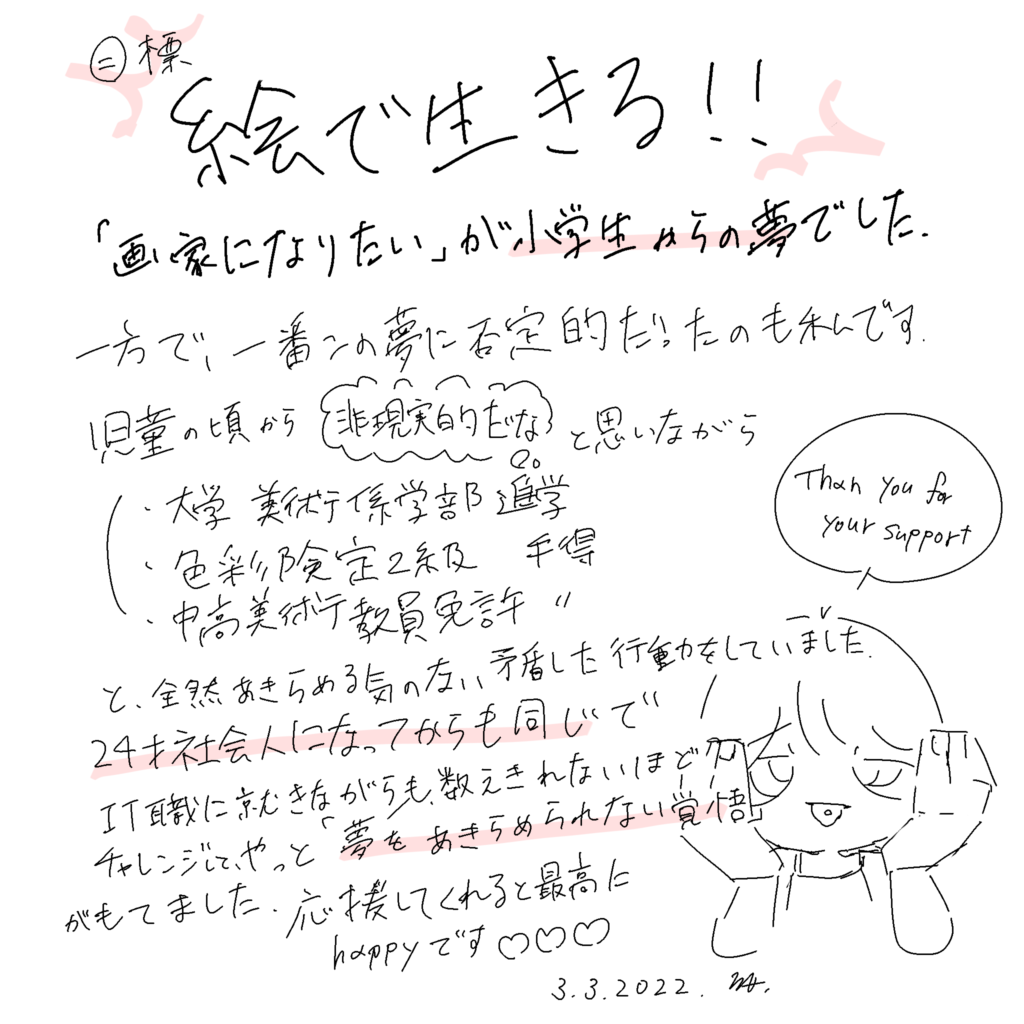 目標
絵で生きる!!
「画家になりたい」が小学生からの夢でした.
一方で、一番この夢に否定的だったのも私です.
児童の頃から 非現実的だな と思いながら
・大学 美術系学部進学
・色彩検定2級 取得
・中高美術教員免許 〃
と、全然あきらめる気のない矛盾した行動をしていました.
24才社会人になってからも同じで
IT職に就きながらも、数えきれないほど
チャレンジして、やっと「夢をあきらめられない覚悟」
がもてました. 応援してくれると最高に
happyです♡♡♡
Than you for
your support
3.3.2022.